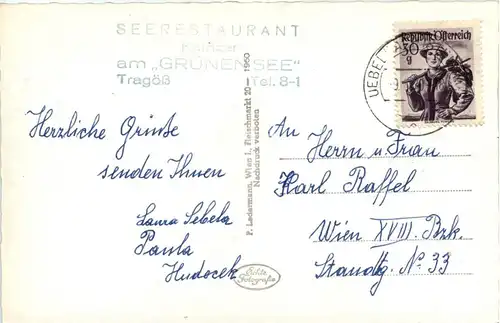 SEERESTAURANT
am „GRÜNENSEE"
Tragöß Tel. 8-1
Herzliche Grüße
senden Ihnen
Laura Sebela
Paula
Hudocek
P. Ledermann, Wien I, Fleischmarkt 20 — 1960
Nachdruck verboten
Echte
Fotografie
Republik Österreich
30
g
UEBEL
An
Herrn u Frau
Karl Raffel
Wien XVIII. Bzk.
Standtg. No 33